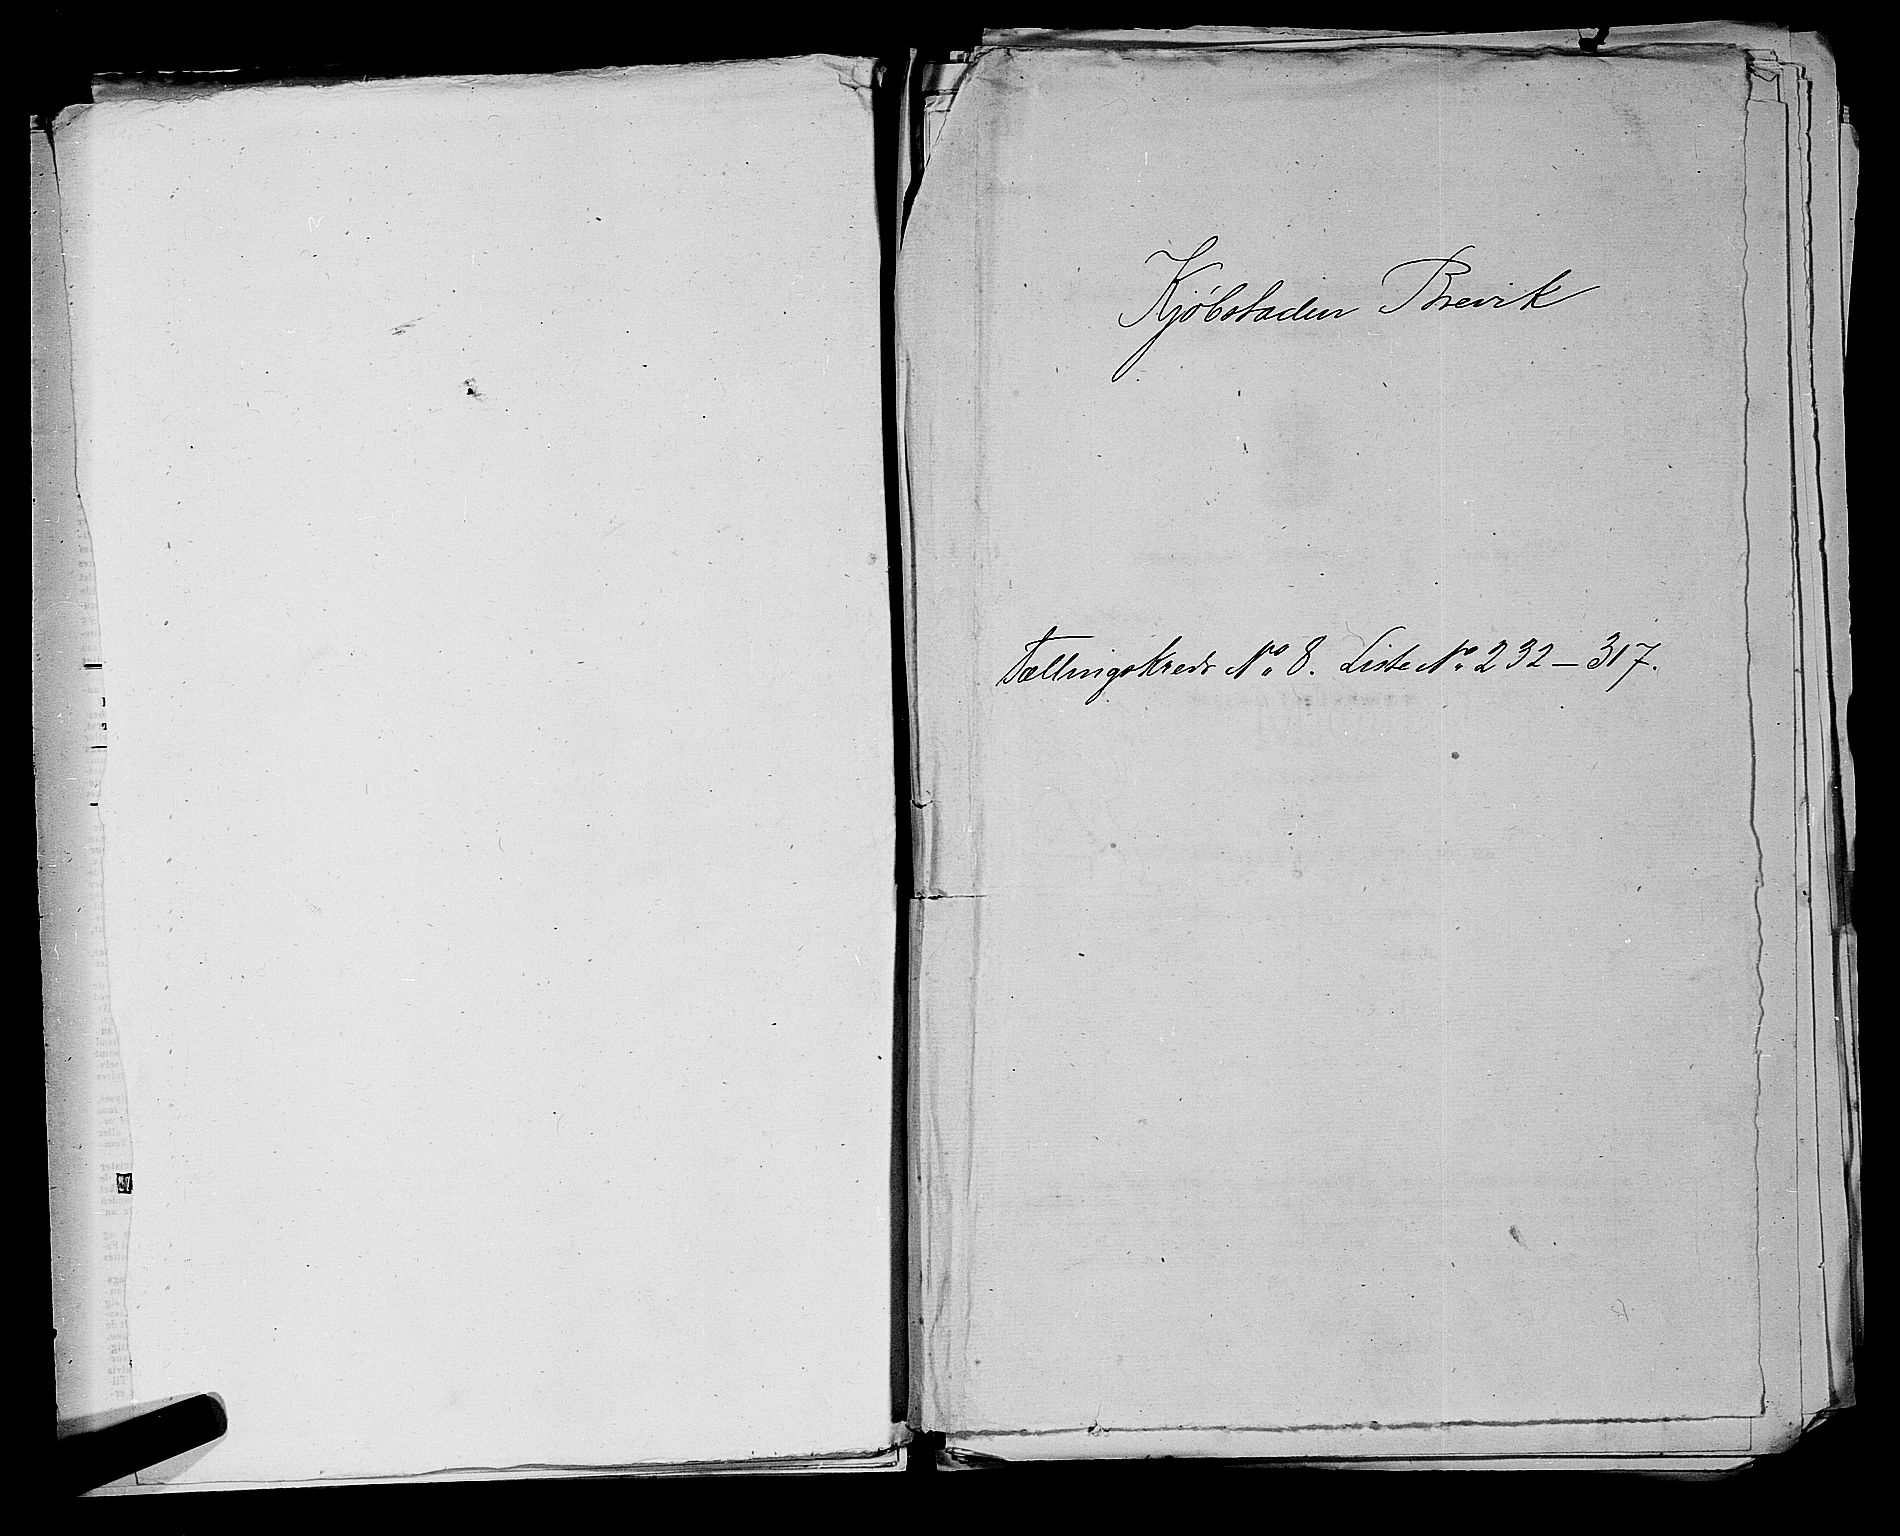 Kjöbstaden Brevik
Tællingskreds No 8. Liste No 232 – 317.